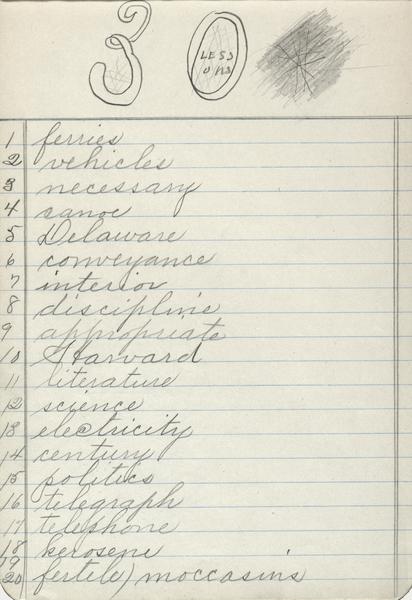 30
LESS
ONS
1 ferries
2 vehicles
3 necessary
4 canoe
5 Delaware
6 conveyance
7 interior
8 discipline
9 appropriate
10 Harvard
11 literature
12 science
13 electricity
14 century
15 politics
16 telegraph
17 telephone
18 kerosene
19
20 fertile) moccasins